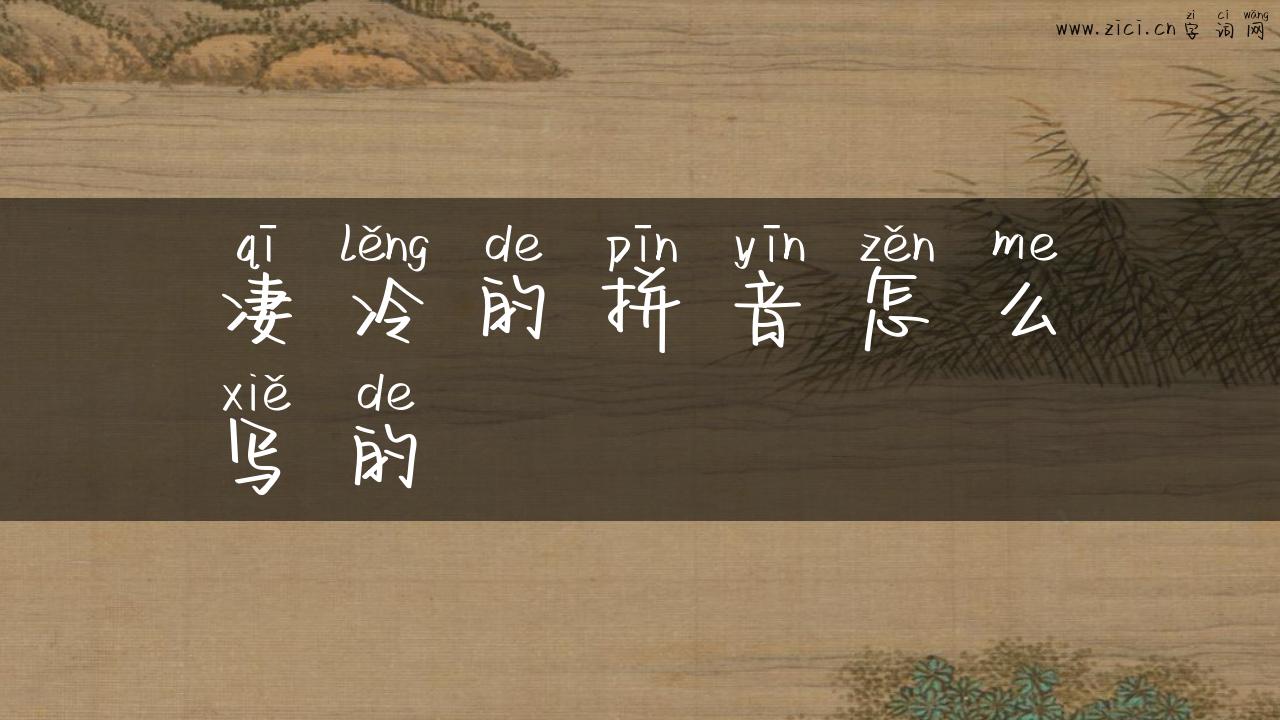 zì cí wǎng
www.zici.cn 字词网
qī lěng de pīn yīn zěn me
凄冷的拼音怎么
xiě de
写的